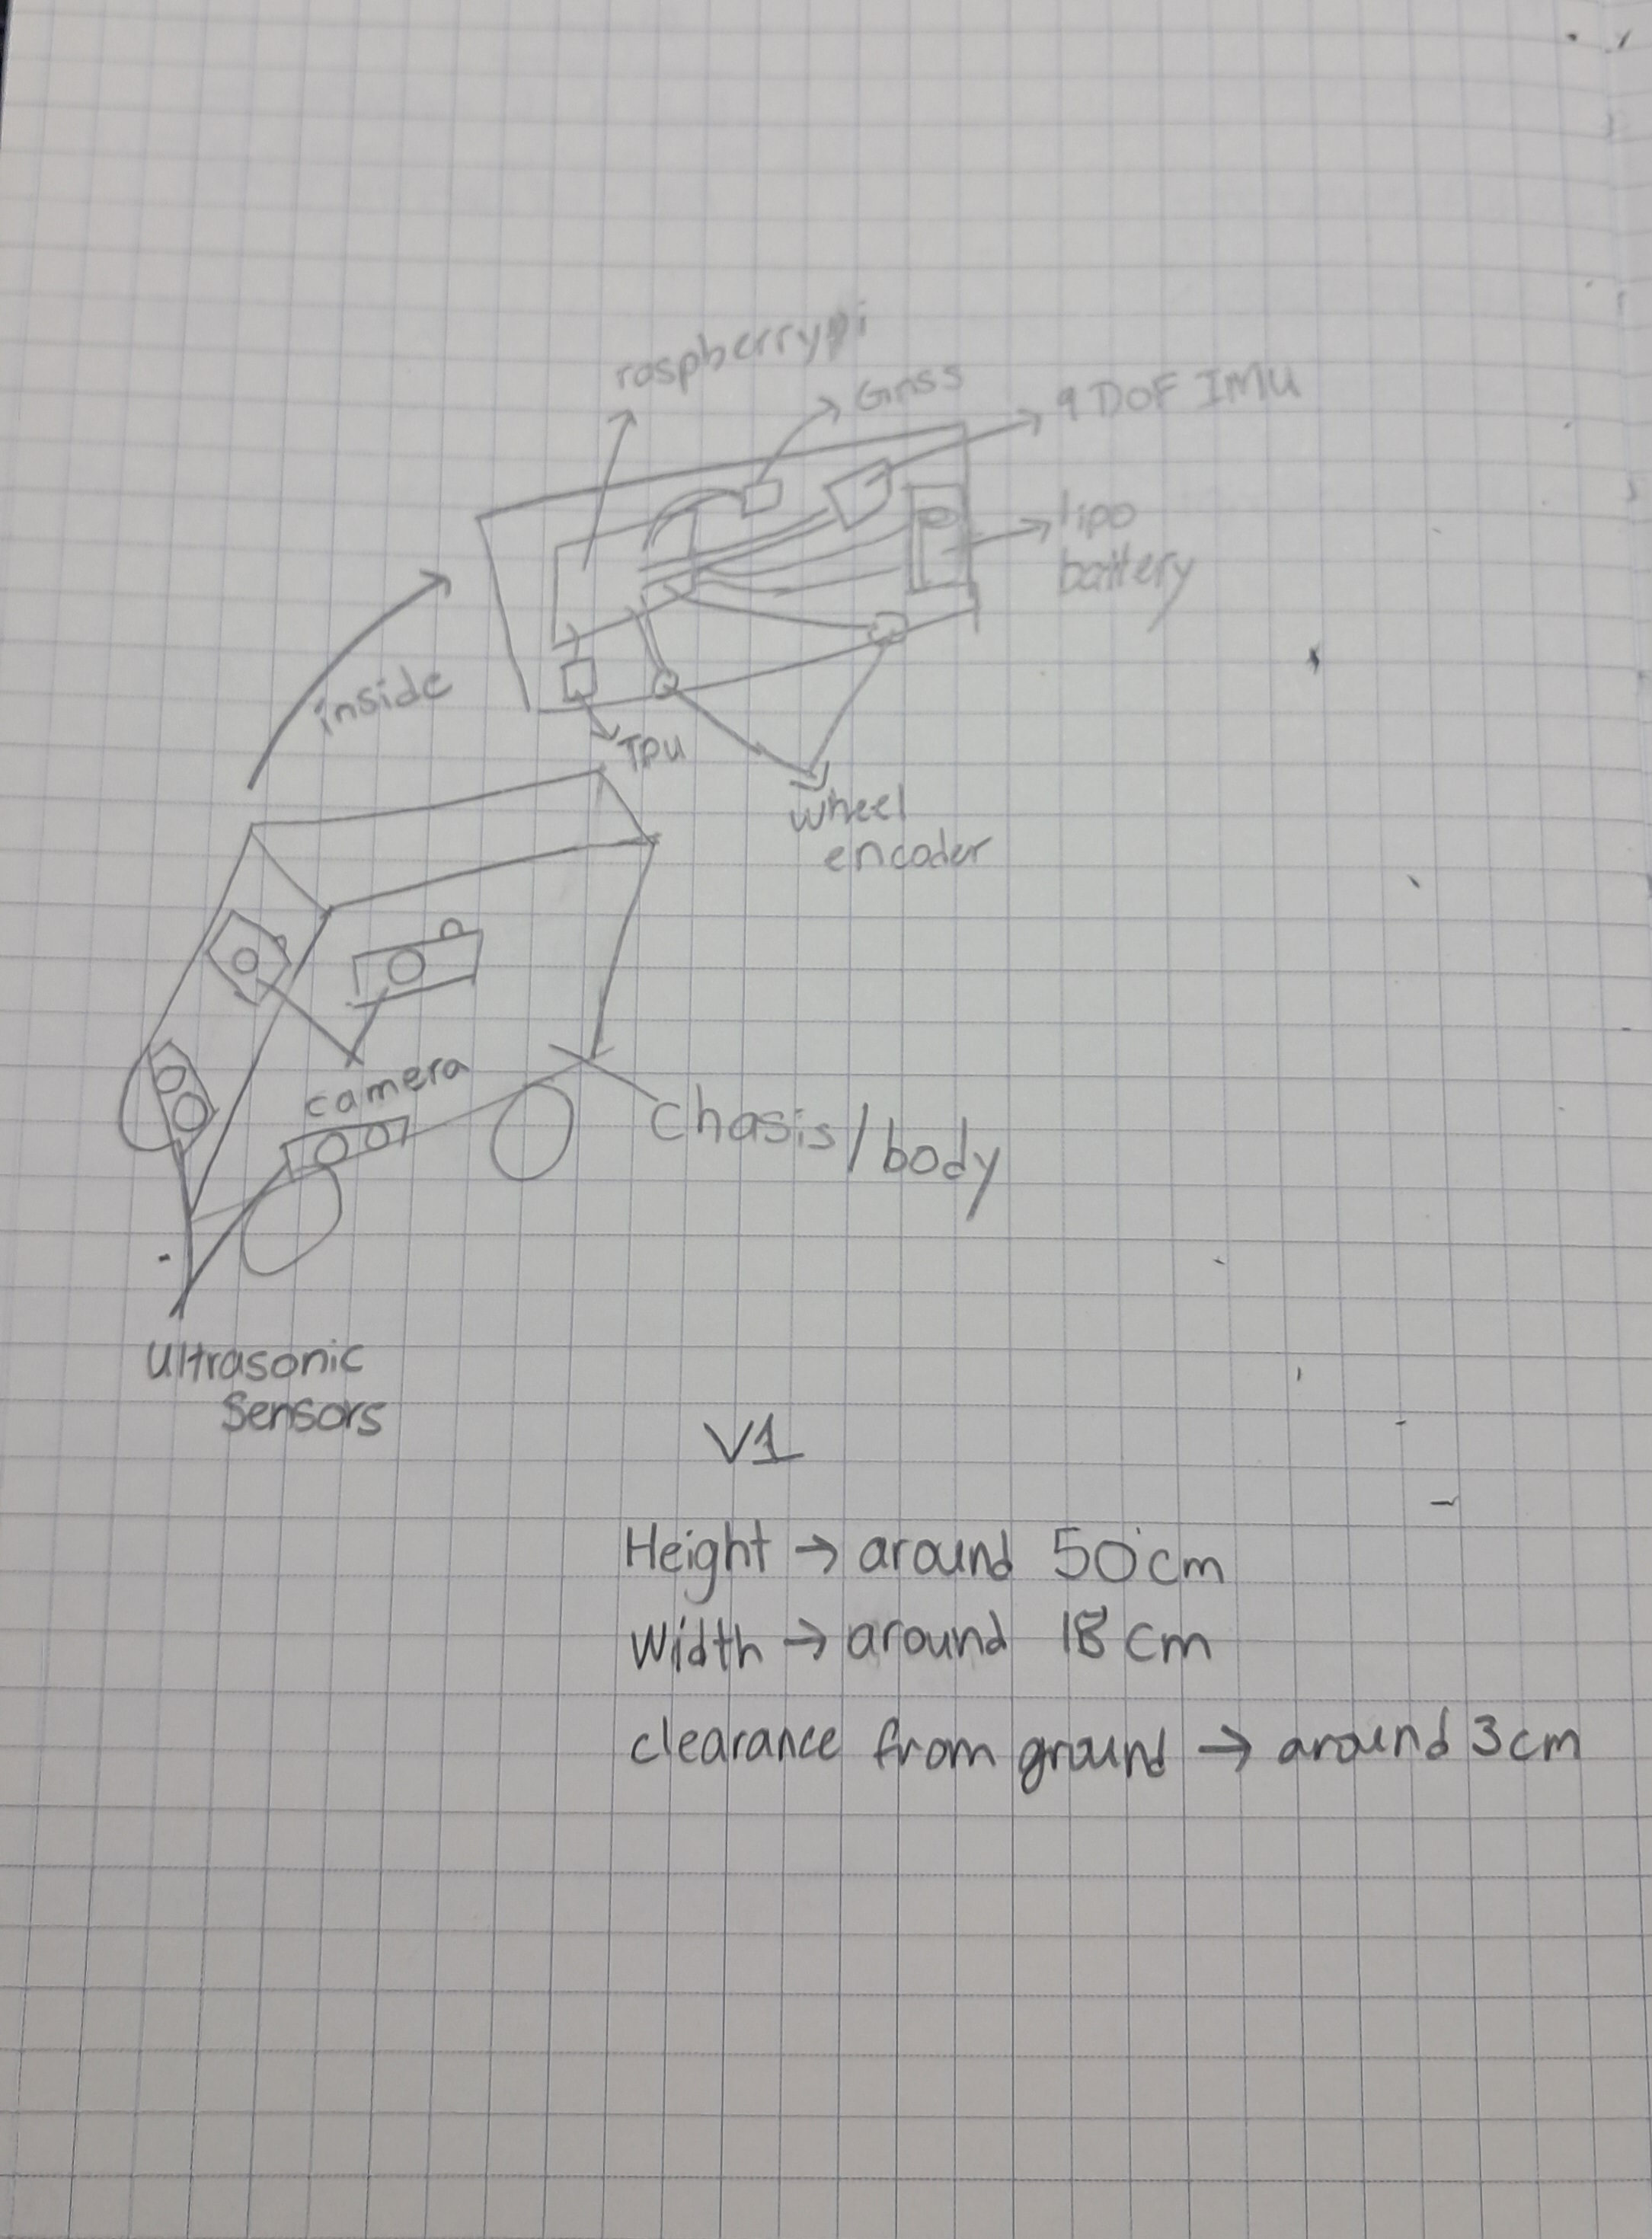 raspberrypi
Gnss
9 DOF IMU
lipo
battery
inside
TPU
wheel
encoder
camera
chasis/body
Ultrasonic
Sensors
V1
Height → around 50 cm
Width → around 18 cm
clearance from ground → around 3 cm